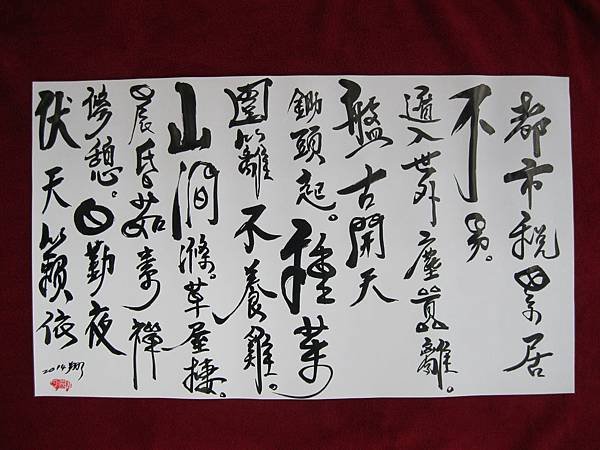 都市稅累居
不易。
遁入世外塵囂離。
盤古開天
鋤頭起。種菜
圍籬不養雞。
山澗滌。草屋捿。
晨昏茹素禪
憩。日勤夜
伏天籟依
2014翔